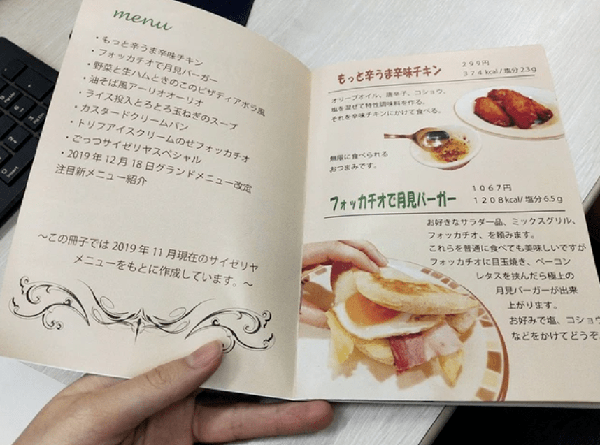 menu
・もっと辛うま辛味チキン
・フォッカチオで月見バーガー
・野菜と生ハムときのこのピザティアボラ風
・油そば風アーリオオーリオ
・ライス投入とろとろ玉ねぎのスープ
・カスタードクリームパン
・トリフアイスクリームのせフォッカチオ
・ごっつサイゼリヤスペシャル
・2019年12月18日グランドメニュー改定
注目新メニュー紹介
〜この冊子では2019年11月現在のサイゼリヤ
メニューをもとに作成しています。〜
もっと辛うま辛味チキン
299円
374kcal/塩分2.3g
オリーブオイル、唐辛子、コショウ、
塩を混ぜて特性調味料を作る。
それを辛味チキンにかけて食べる。
無限に食べられる
おつまみです。
フォッカチオで月見バーガー
1067円
1208kcal/塩分6.5g
お好きなサラダ一品、ミックスグリル、
フォッカチオ、を頼みます。
これらを普通に食べても美味しいですが
フォッカチオに目玉焼き、ベーコン
レタスを挟んだら極上の
月見バーガーが出来
上がります。
お好みで塩、コショウ
などをかけてどうぞ